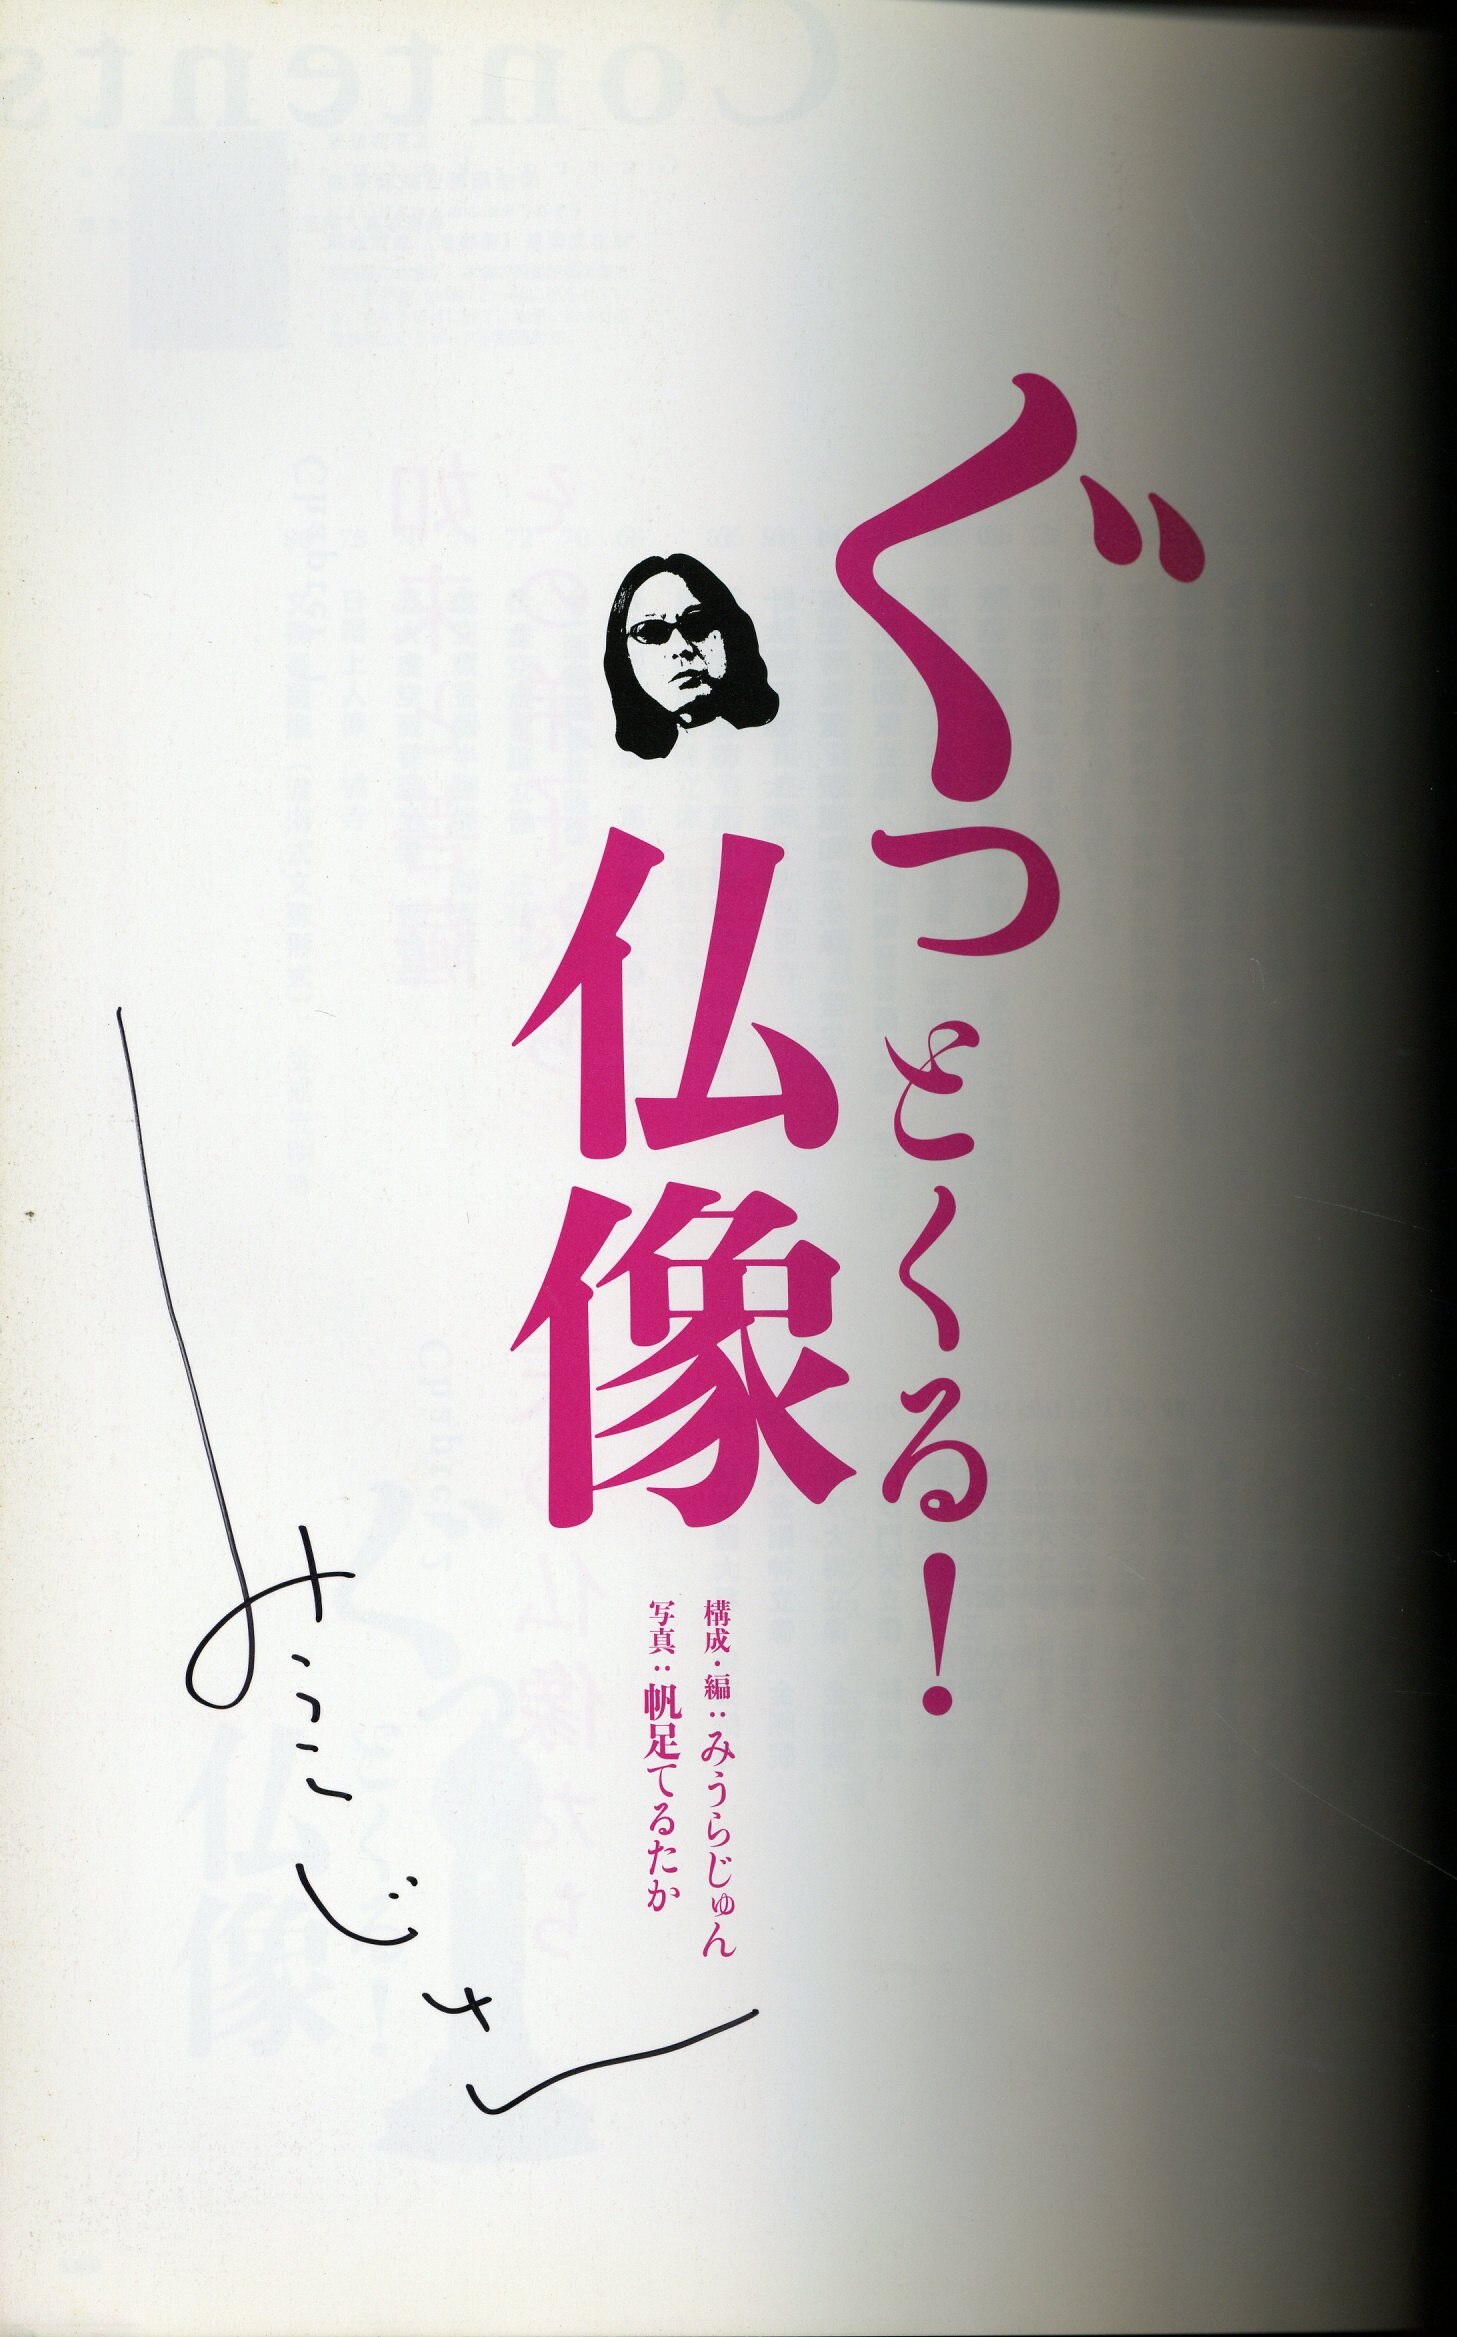 ぐっとくる!
仏像
構成・編:みうらじゅん
写真:帆足てるたか
みうらじゅん